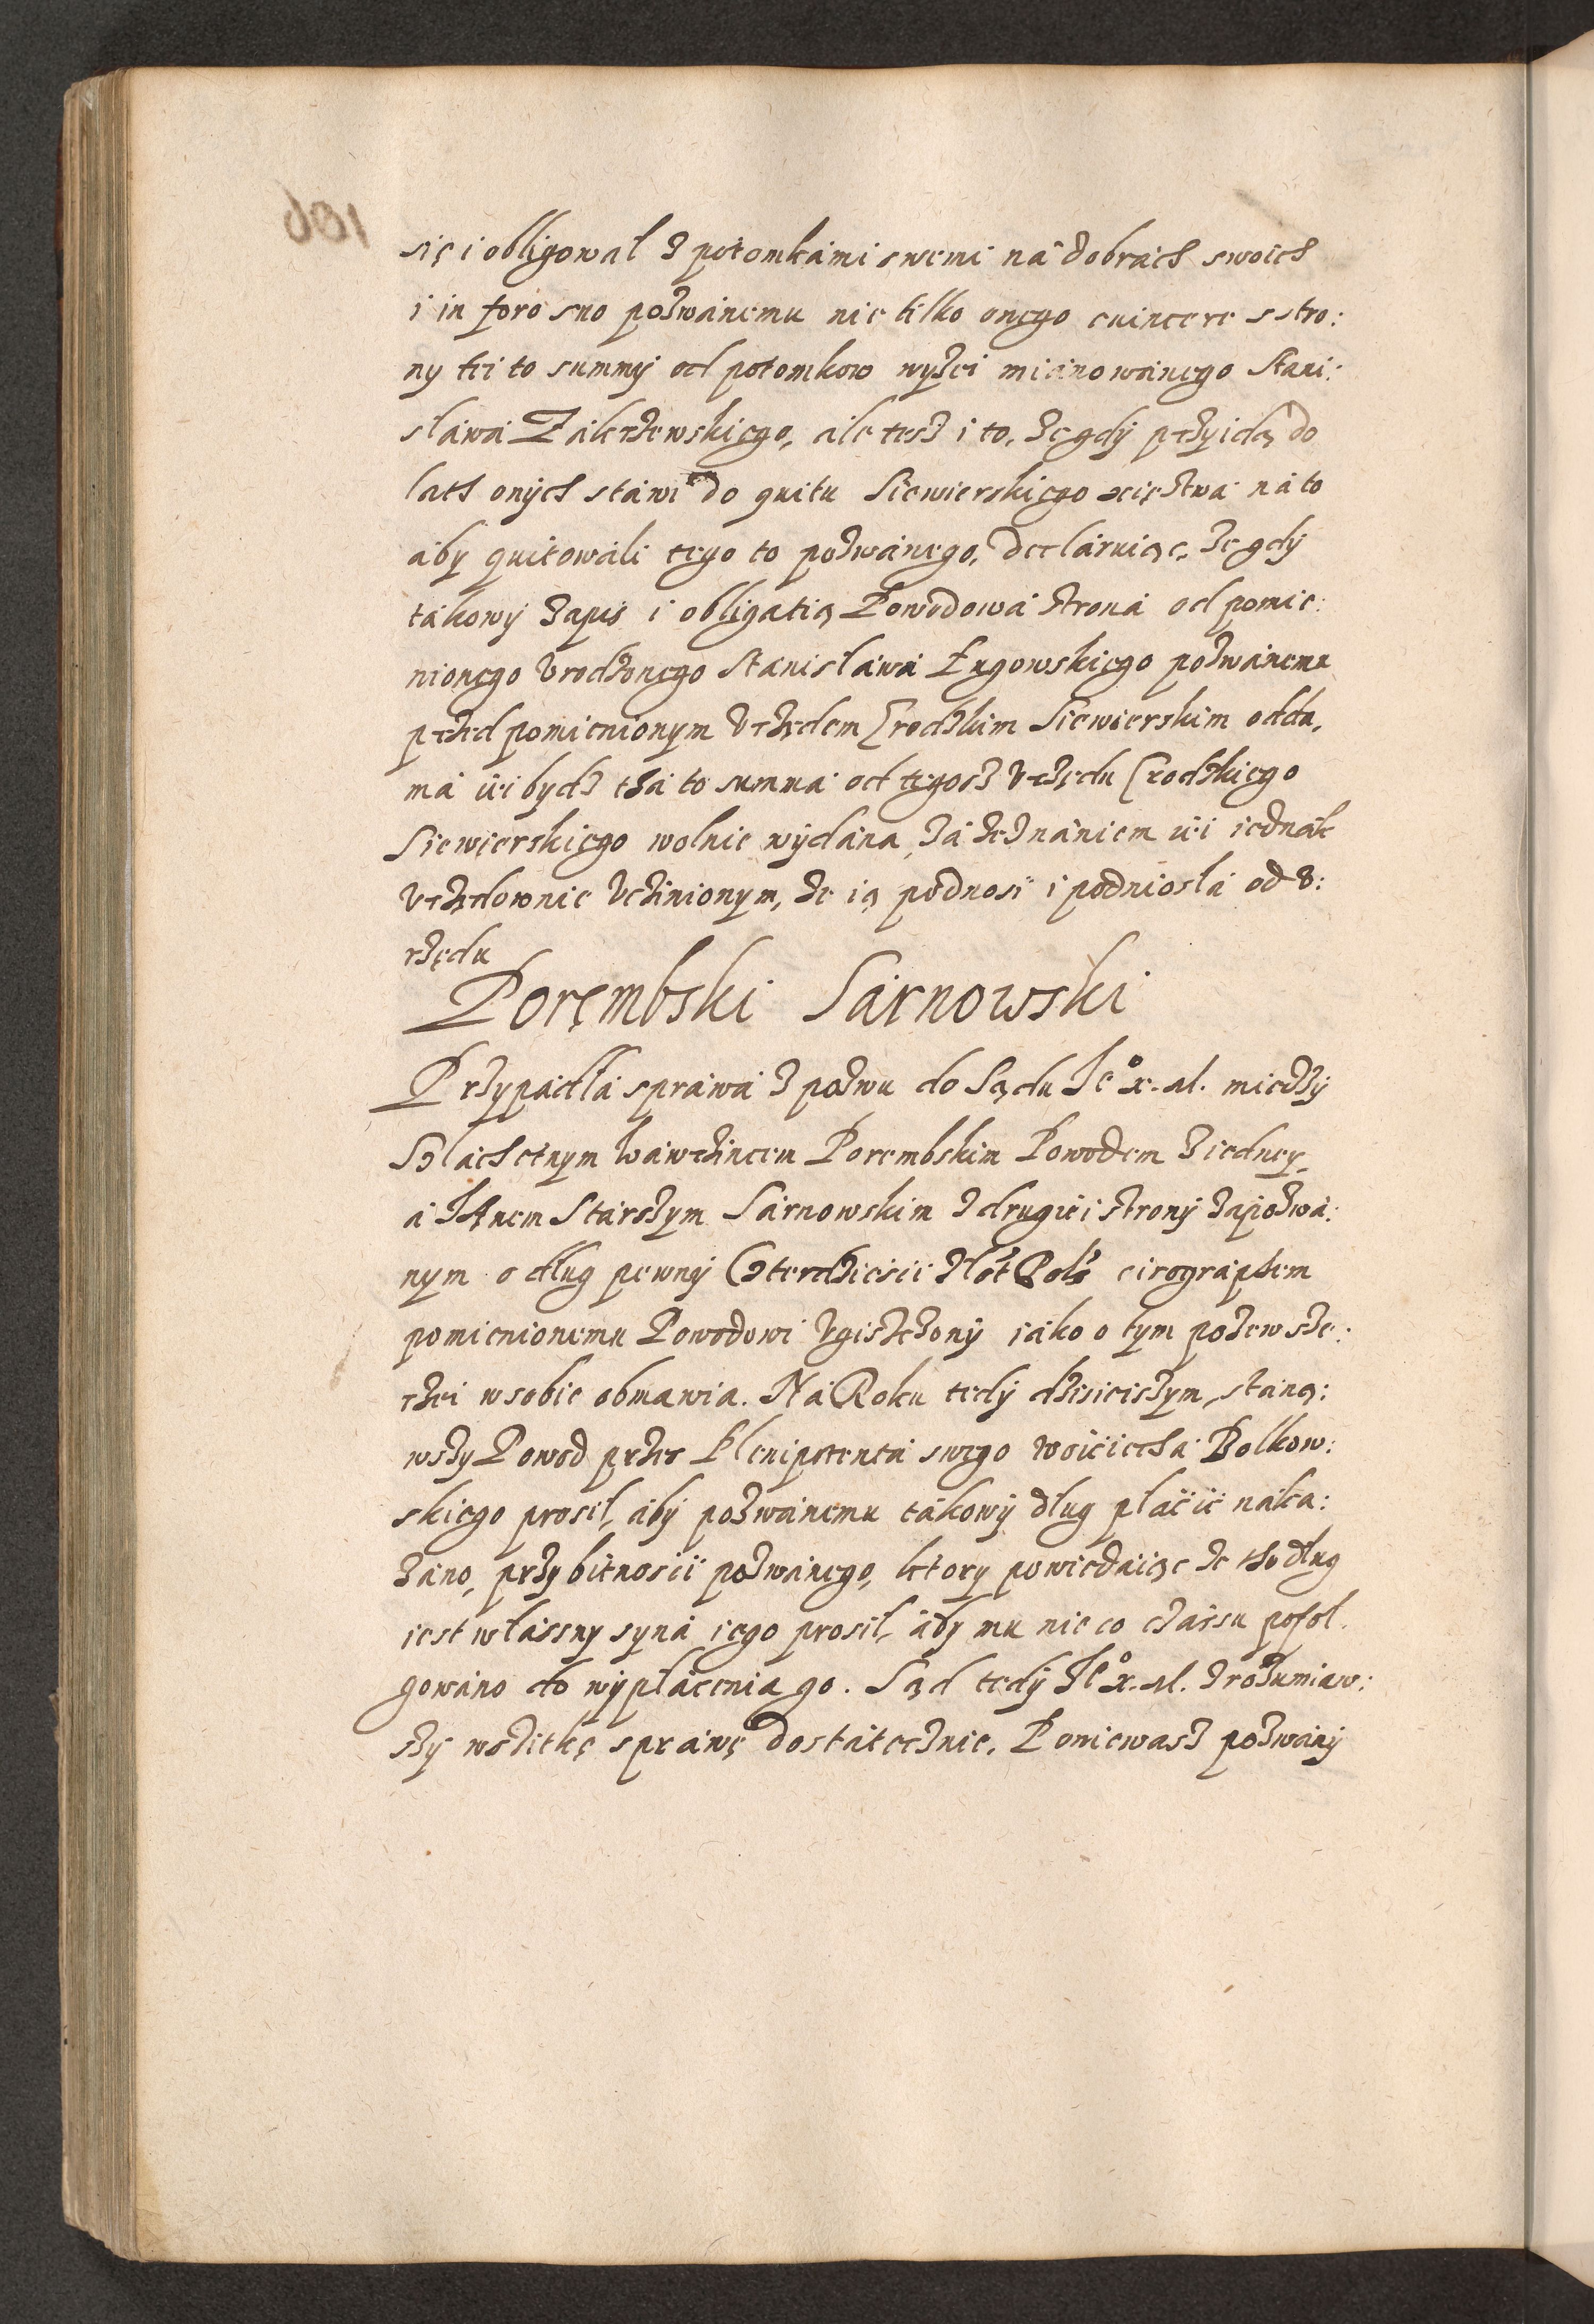 się i obligował z potomkami swemi ná dobrách swoich
i in foro suo pozwánemu nie tilko onego euincere s stro:
ny tei to summÿ od potomkow wyżei miánowánego Stani:
sławá Zakrzewskiego, ale tesz i to, że gdÿ przyidą do
lath onÿch stáwi do quitu Siewierskiego xięstwá ná to
áby quitowáli tego to pozwánego, declaruiąc, że gdÿ
tákowÿ zapis i obligatią Powodowá stroná od pomie:
nionego Urodzonego Stanisławá Ługowskiego pozwánemu
przed pomienionym Urzędem Grodzkim Siewierskim odda,
má iei bydz tha to summá od tegosz Urzędu Grodzkiego
Siewierskiego wolnie wÿdána, zá zeznániem iei iednák
Urzędownie Uczinionym, że ią podnosi i podniosłá od U:
rzędu
Poręmbski Sárnowski
Przypádłá spráwá z pozwu do Sądu Je° x. M. miedzÿ
Szláchetnym Wáwrzincem Porembskim Powodem z iedney,
á Janem Stárszym Sárnowskim z drugiei stronÿ zapozwá:
nym o dług pewnÿ Czterdziescii Złot Pols cirográphem
pomienionemu Powodowi Ugiszczonÿ iáko o tym pozew sze:
rzei w sobie obmawia. Ná Roku tedÿ dzisieiszym, stáną:
wszy Powod przez Plenipotentá swego Woiciechá Bolkow:
skiego prosił, abÿ pozwánemu tákowÿ dług płáćić náka:
zano, przy bitnoscii pozwánego, ktory powiedáiąc że tho dług
iest własny syná iego prosił, áby mu nieco czássu pofol:
gowáno do wÿpłácenia go. Sąd tedÿ Je° x. M. zrozumiaw:
szÿ wszitkę spráwę dostátecznie, Poniewasz pozwánÿ